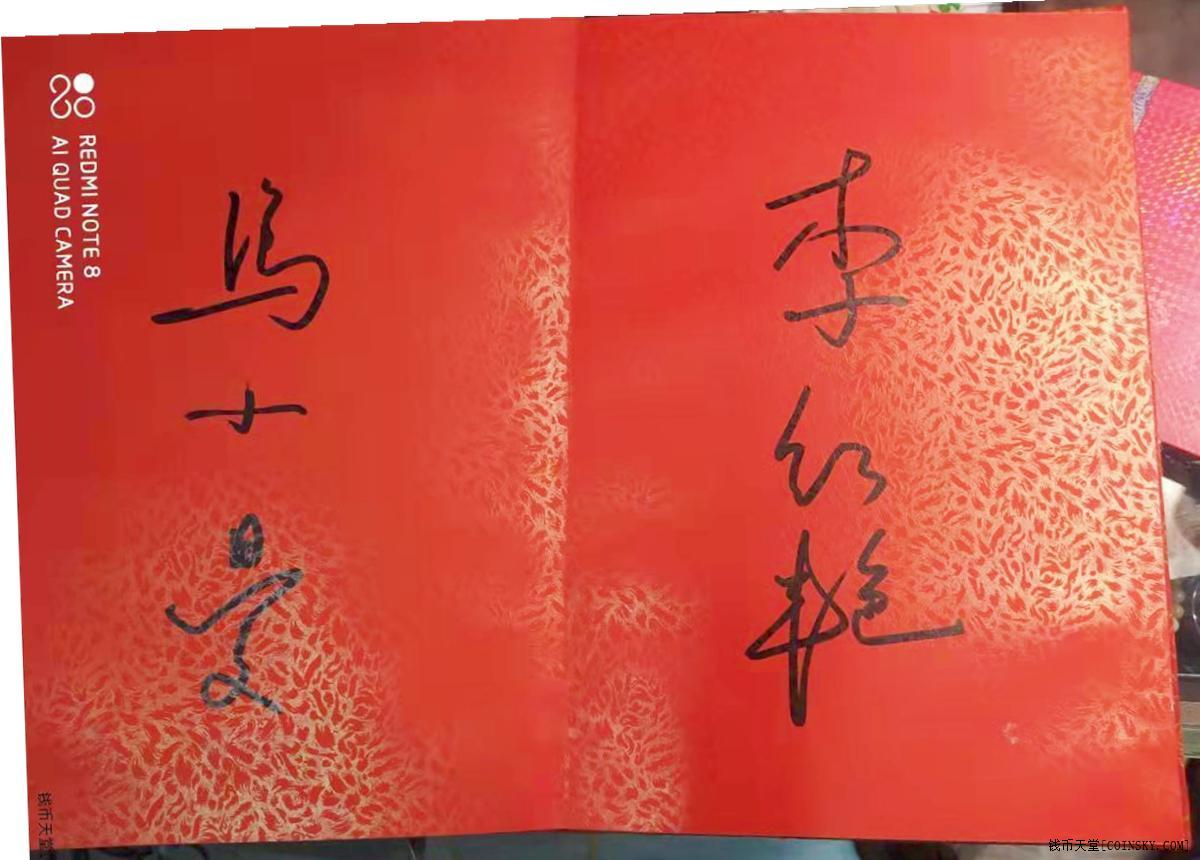 李红艳
馬小曼
REDMI NOTE 8
AI QUAD CAMERA
钱币天堂
钱币天堂[COINSKY.COM]